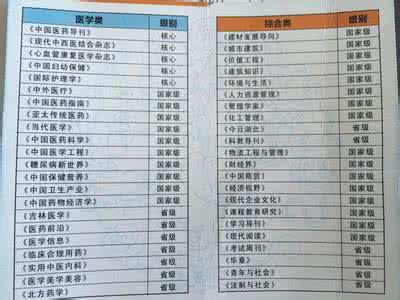 医学类 级别
《中国医药导刊》 核心
《现代中西医结合杂志》 核心
《心血管康复医学杂志》 核心
《中国妇幼保健》 核心
《国际护理学》 核心
《中外医疗》 国家级
《中国医药指南》 国家级
《亚太传统医药》 国家级
《当代医学》 国家级
《中国医药科学》 国家级
《中国医学工程》 国家级
《糖尿病新世界》 国家级
《中国保健营养》 国家级
《中国卫生产业》 国家级
《中国药物经济学》 国家级
《吉林医学》 省级
《医药前沿》 省级
《医学信息》 省级
《临床合理用药》 省级
《实用中医内科》 省级
《医学美学美容》 省级
《北方药学》 省级
综合类 级别
《建材发展导向》 国家级
《城市建筑》 国家级
《价值工程》 国家级
《建筑知识》 国家级
《环境与生活》 国家级
《人力资源管理》 国家级
《管理学家》 国家级
《化工管理》 国家级
《今日湖北》 省级
《科教导刊》 省级
《物流工程与管理》 国家级
《财经界》 国家级
《中国商贸》 国家级
《经济视野》 国家级
《现代企业文化》 国家级
《课程教育研究》 国家级
《学习导刊》 国家级
《现代阅读》 国家级
《考试周刊》 省级
《华章》 省级
《青年与社会》 省级
《法制与社会》 省级